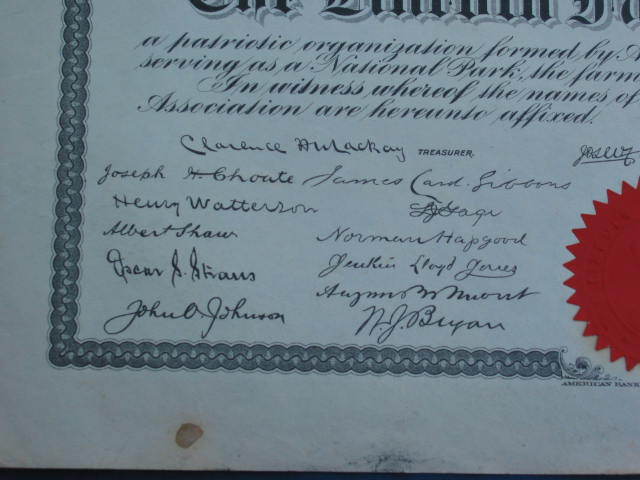 The Lincoln Fa
a patriotic organization formed by A
serving as a National Park, the farm
In witness whereof the names of
Association are hereunto affixed.
Clarence H Mackay TREASURER.
Joseph H Choate James Card. Gibbons
Henry Watterson
Albert Shaw Norman Hapgood
Oscar S. Straus Jenkin Lloyd Jones
John A Johnson W. J. Bryan
AMERICAN BANK